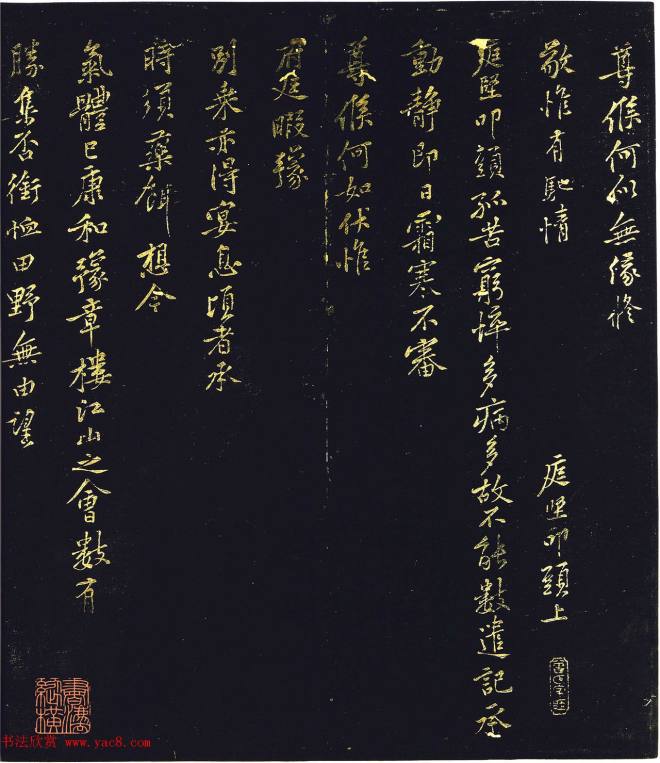 尊候何似無緣修
敬惟有馳情
庭堅叩頭上
庭堅叩頭孤苦窮悴多病多故不能數遣記承
動靜即日霜寒不審
尊候何如伏惟
府廷暇豫
別乘亦得宴息頃者承
時須藥餌想今
氣體已康和豫章樓江山之會數有
勝集否銜恤田野無由望
書法欣賞 www.yac8.com